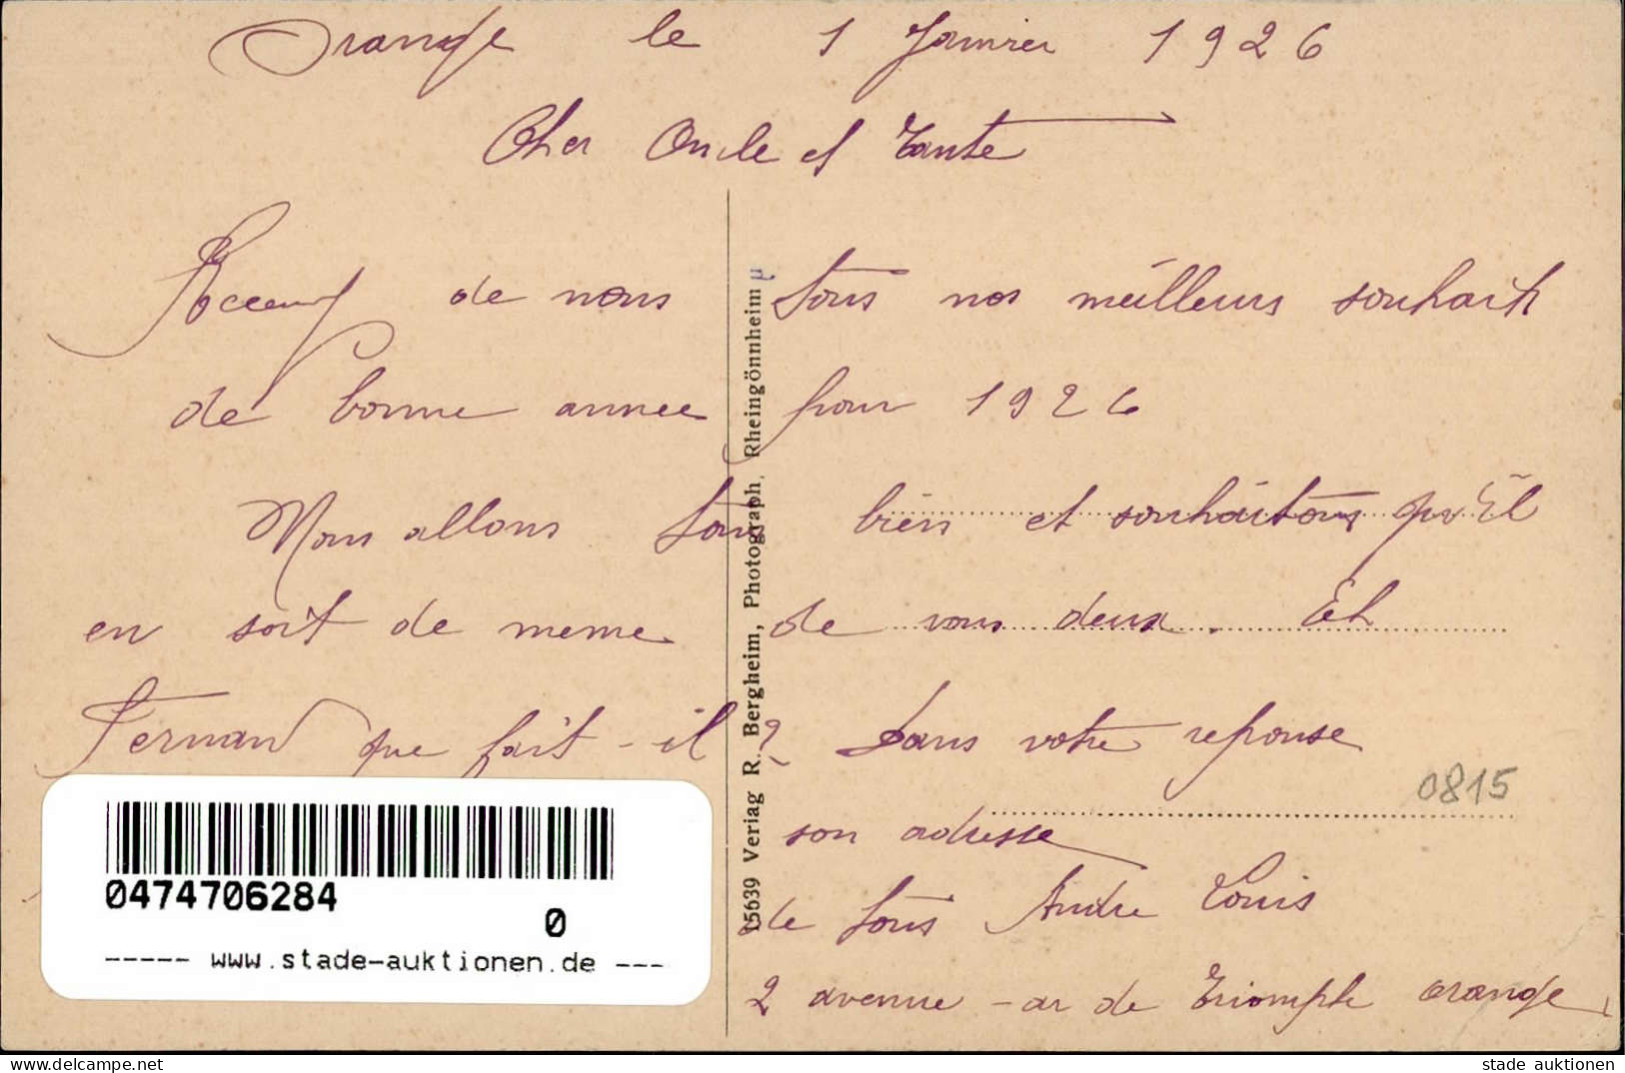 Orange le 1 Janvier 1926
Cher Oncle et Tante
de nous tous nos meilleurs souhaits
de bonne annee pour 1926
Nous allons tous bien et souhaitons qu'il
en soit de meme de vous deux. Et
Fernand que fait-il? Dans votre reponse
son adresse
de tous Andre Louis
2 avenue - ar de Triomphe orange
15639 Verlag R. Bergheim, Photograph, Rheingönnheim
0815
0474706284
0
----- www.stade-auktionen.de ---
www.delcampe.net
stade auktionen